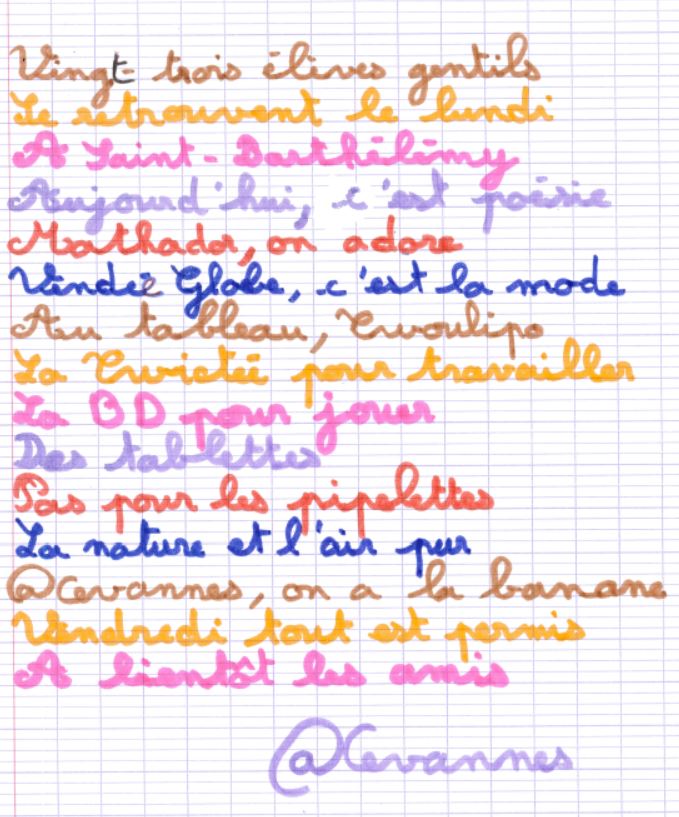 Vingt trois élèves gentils
Se retrouvent le lundi
A Saint-Barthélémy
Aujourd'hui, c'est poésie
Mathador, on adore
Vendée Globe, c'est la mode
Au tableau, Twoulipo
La Twictée pour travailler
La BD pour jouer
Des tablettes
Pas pour les pipelettes
La nature et l'air pur
@Cevannes, on a la banane
Vendredi tout est permis
A bientôt les amis
@Cevannes